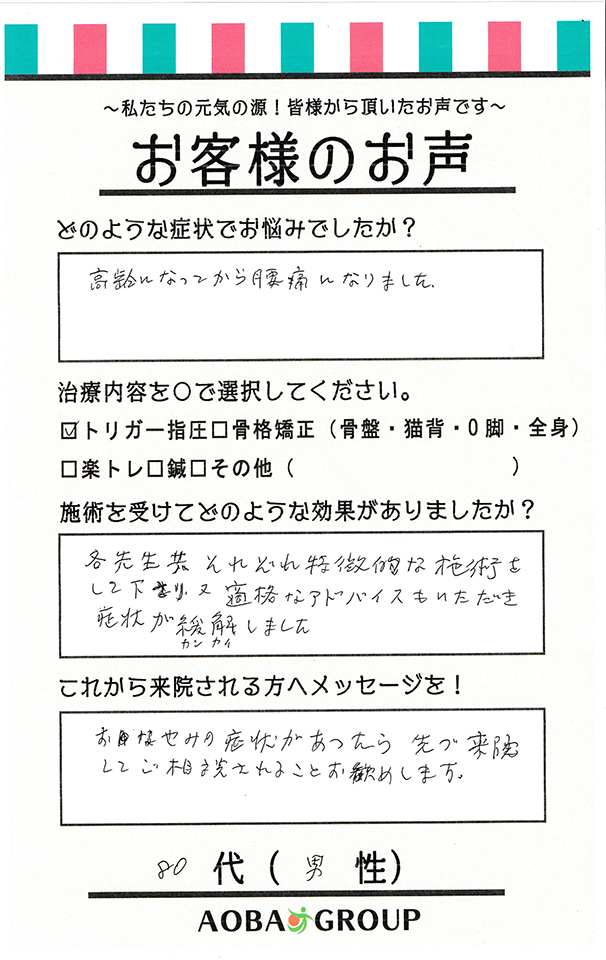 ～私たちの元気の源！皆様から頂いたお声です～
お客様のお声
どのような症状でお悩みでしたか？
高齢になってから腰痛になりました.
治療内容を〇で選択してください。
☑トリガー指圧□骨格矯正（骨盤・猫背・O脚・全身）
□楽トレ□鍼□その他（　　　　　　　　　）
施術を受けてどのような効果がありましたか？
各先生共それぞれ特徴的な施術を
して下さり、又適格なアドバイスもいただき
症状が緩解しました
カンカイ
これから来院される方へメッセージを！
おなやみの症状があったら 先づ来院
してご相談されることお勧めします。
80 代（ 男 性）
AOBA GROUP